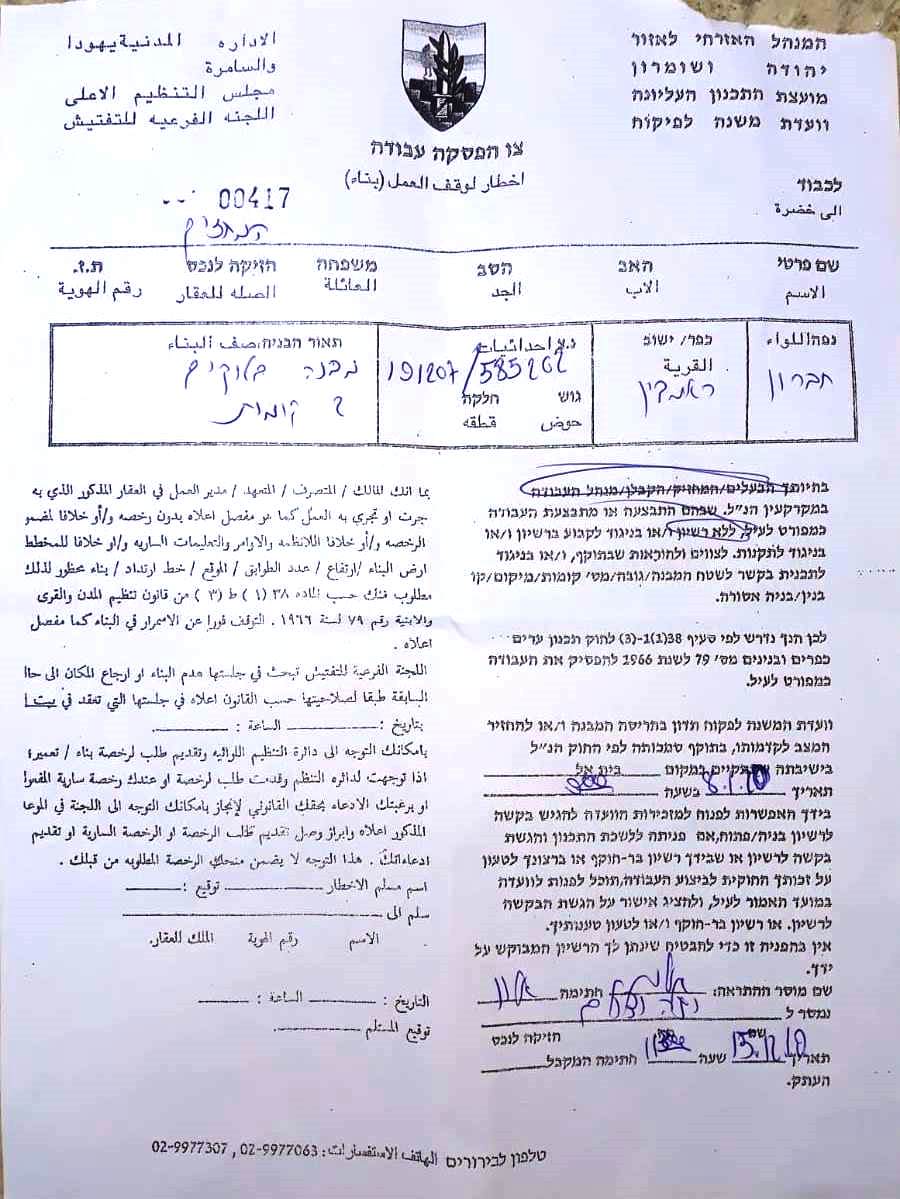 המנהל האזרחי לאזור
יהודה ושומרון
מועצת התכנון העליונה
וועדת משנה לפיקוח
الاداره المدنية يهودا
والسامرة
مجلس التنظيم الاعلى
اللجنه الفرعيه للتفتيش
צו הפסקה עבודה
اخطار لوقف العمل (بناء)
לכבוד
الى حضرة
00417
המחזיק
שם פרטי האב הסב משפחה חזיקה לנכס ת.ז.
الاسم الاب الجد العائلة الصله للعقار رقم الهوية
נפה اللواء
חברון
כפר/ ישוב
القرية
נ.צ احداثيات
191207/585262
גוש חלקה
حوض قطقه
תאור הבניה، صف البناء
מבנה בלוקים
2 קומות
בחיותך הבעלים/המחזיק/הקבלן/מנהל העבודה
במקרקעין הנ"ל. שבהם התבצעה או מתבצעת העבודה
כמפורט לעיל, ללא רשיון ו/או בניגוד לקבוע ברשיון ו/או
בניגוד לתקנות. לצווים ולהוראות שבתוקף, ו/או בניגוד
לתבנית בקשר לשטח המבנה/גובה/מס' קומות/מיקום/קו
בנין/בניה אסורה.
לכן הנך נדרש לפי סעיף 38(1)ט-(3) לחוק תכנון ערים
כפרים ובנינים מס' 79 לשנת 1966 להפסיק את העבודה
כמפורט לעיל.
וועדת המשנה לפקוח תדון בהריסת המבנה ו/או להחזיר
המצב לקדמותו, בתוקף סמכותה לפי החוק הנ"ל
בישיבתה שתתקיים במקום בית אל
תאריך 8.1.20 בשעה 900
בידך האפשרות לפנות למזכירות הוועדה להגיש בקשה
לרשיון בניה/פתוח, אם פניתה ללשכת התכנון והגשת
בקשה לרשיון או שבידך רשיון בר-תוקף או ברצונך לטעון
על זכותך החוקית לביצוע העבודה, תוכל לפנות לוועדה
במועד האמור לעיל, ולהציג אישור על הגשת הבקשה
לרשיון. או רשיון בר-תוקף ו/או לטעון טענותיך.
אין בהפניה זו כדי להבטיח שינתן לך הרשיון המבוקש על
ידך.
שם מוסר ההתראה: חתימה
נמסר ל
שם חזיקה לנכס
תאריך שעה חתימה המקבל
העתק.
بما انك المالك / المتصرف / المتعهد / مدير العمل في العقار المذكور الذي به
جرت او تجري به العمل كما هو مفصل اعلاه بدون رخصه و/أو خلافا لمضمو
الرخصه و/أو خلافا اللانظمه والاوامر والتعليمات الساريه و/او خلافا للمخطط
ارض البناء /ارتفاع / عدد الطوابق / الموقع / خط ارتداد / بناء محظور لذلك
مطلوب منك حسب الماده ٣٨ (١) ط (٣) من قانون تنظيم المدن والقرى
والابنية رقم ٧٩ لسنة ١٩٦٦ . التوقف فورا عن الاسمرار في البناء كما مفصل
اعلاه .
اللجنة الفرعية للتفتيش تبحث في جلستها هدم البناء او ارجاع المكان الى حا
السابقة طبقا لصلاحيتها حسب القانون اعلاه في جلستها التي تعقد في بيت ا
بتاريخ : الساعة :
بامكانك التوجه الى دائرة التنظيم اللوائيه وتقديم طلب لرخصة بناء / تعمير؛
اذا توجهت لدائره التنظم وقدمت طلب لرخصة او عندك رخصة سارية المفعوا
او برغبتك الادعاء بحقك القانوني لإنجاز بامكانك التوجه الى اللجنة في الموعا
المذكور اعلاه وابراز وصل تقديم طلب الرخصة او الرخصة السارية او تقديم
ادعاءاتك . هذا التوجه لا يضمن منحك الرخصة المطلوبه من قبلك .
اسم مسلم الاخطار توقيع :
سلم الى
الاسم رقم الهوية الملك للعقار.
التاريخ : الساعة :
توقيع المستلم
טלפון לבירורים الهاتف الاستفسارات: 02-9977063 , 02-9977307